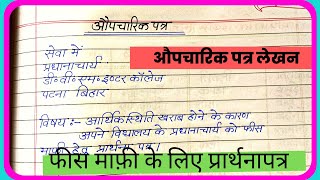 औपचारिक पत्र
सेवा में
प्रधानाचार्य
डी॰वी॰एम॰इण्टर कॉलेज
पटना बिहार
औपचारिक पत्र लेखन
विषय:- आर्थिक स्थिति खराब होने के कारण
अपने विद्यालय के प्रधानाचार्य को फीस
माफ़ी हेतु प्रार्थना पत्र।
फीस माफ़ी के लिए प्रार्थनापत्र